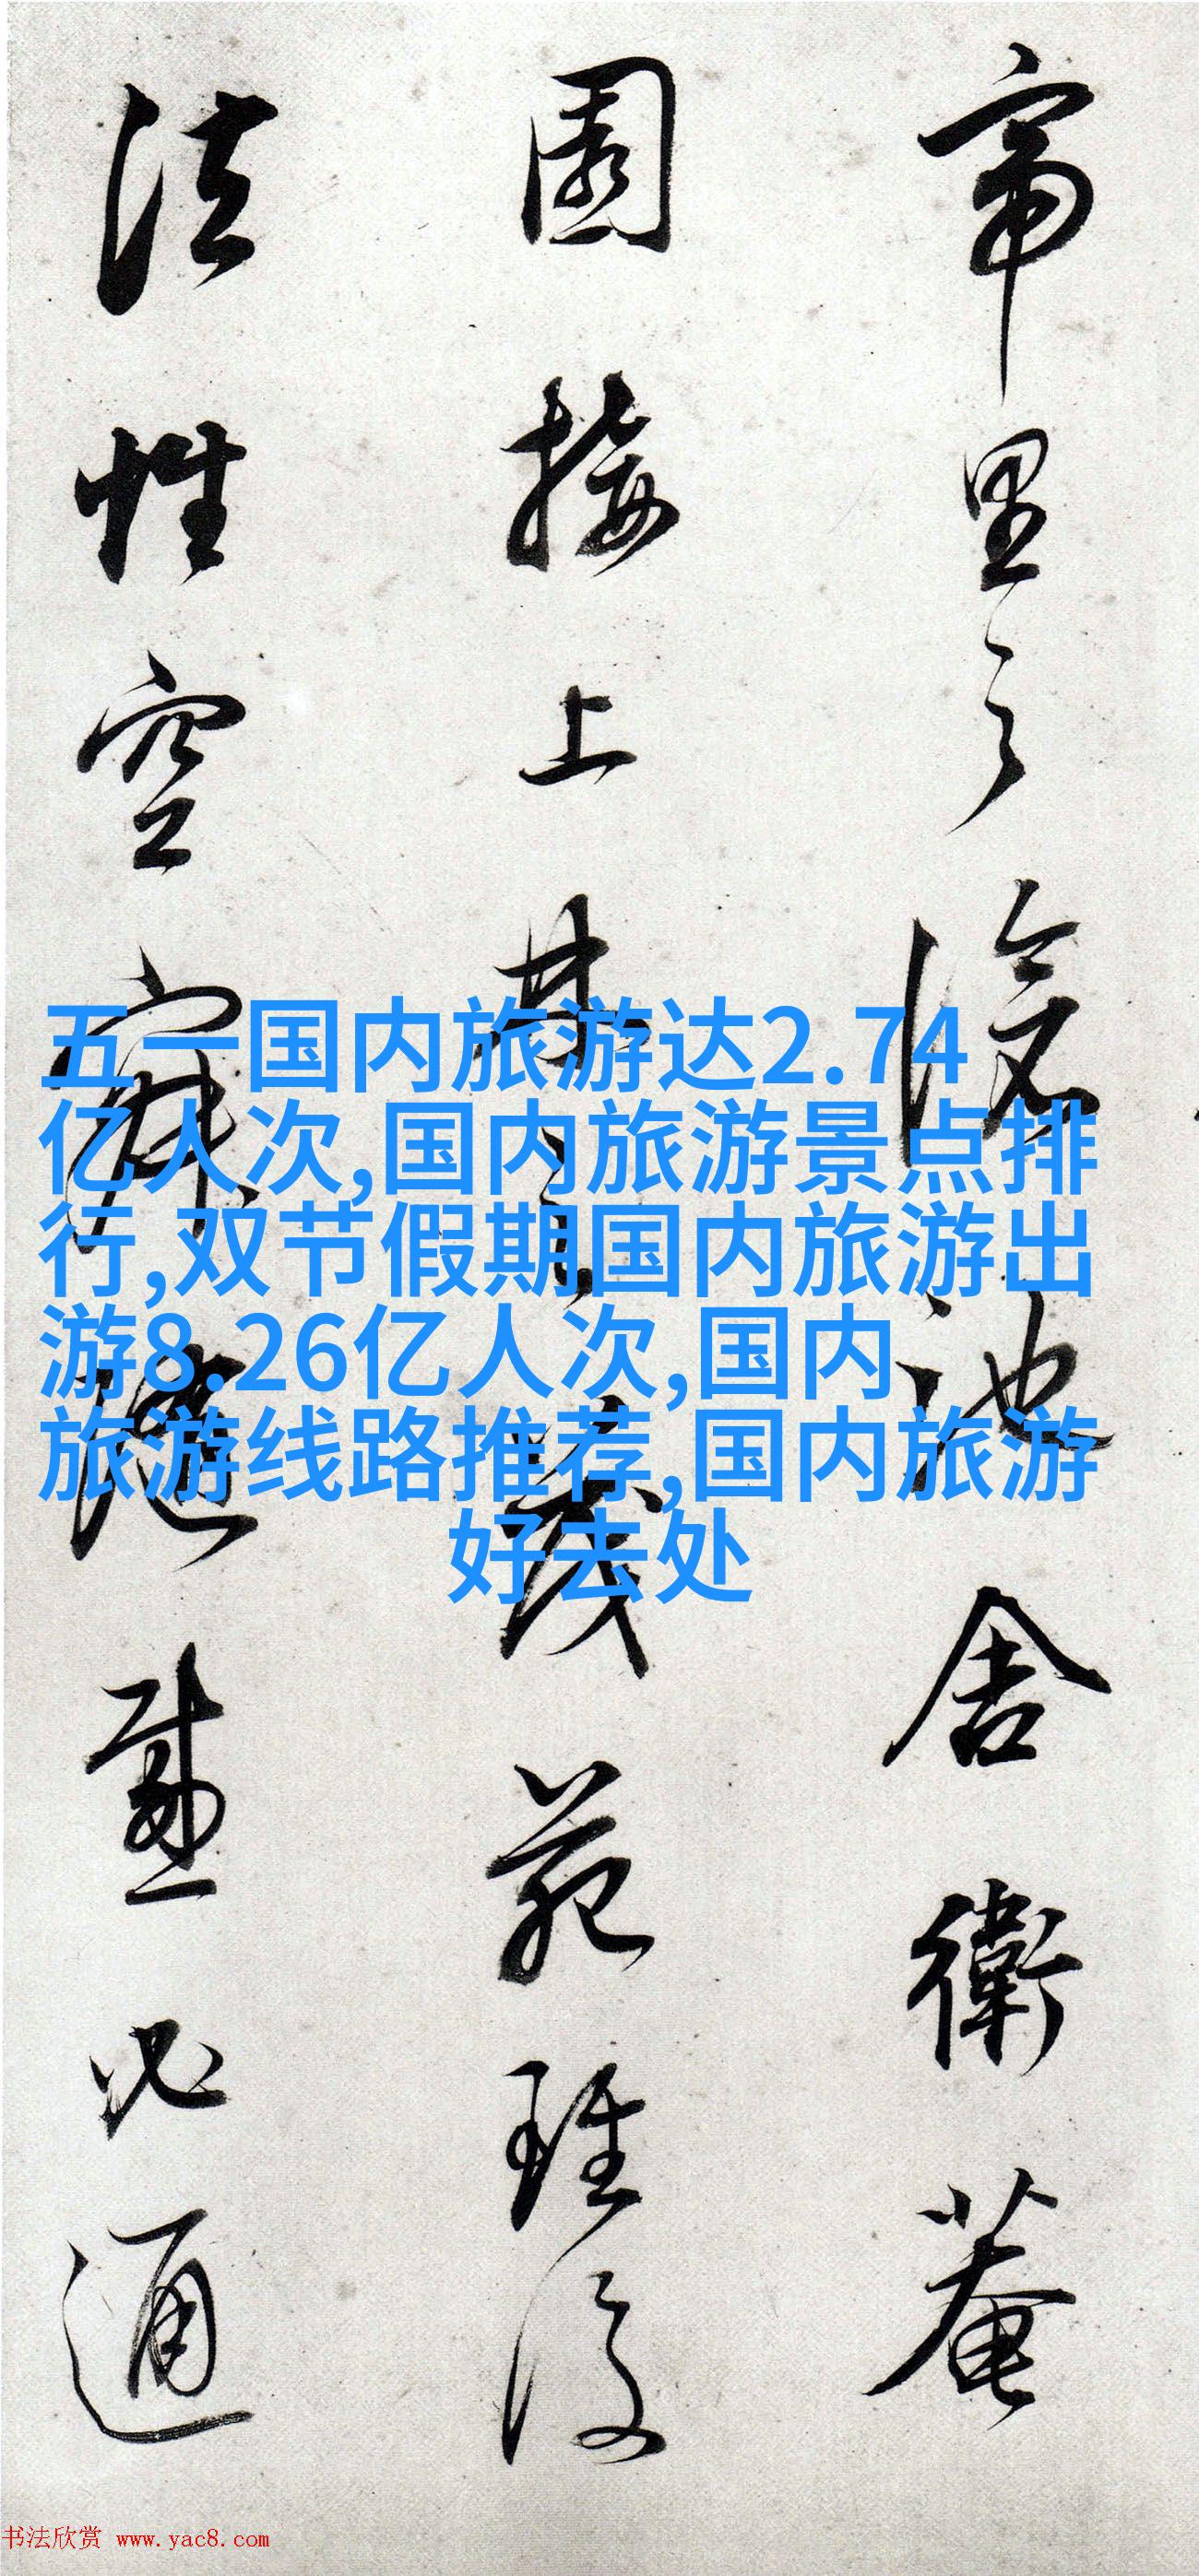 帝里之滄池舍衛菴
園接上林之茂苑雖後
法性空寂隨感必通
五一国内旅游达2.74
亿人次,国内旅游景点排
行,双节假期国内旅游出
游8.26亿人次,国内
旅游线路推荐,国内旅游
好去处
书法欣赏 www.yac8.com